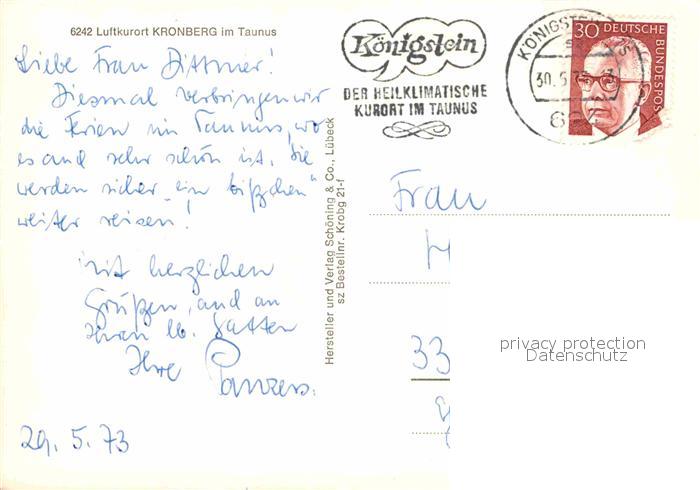 6242 Luftkurort KRONBERG im Taunus
Liebe Frau Dittmer!
Diesmal verbringen wir
die Ferien im Taunus, wo
es auch sehr schön ist. Sie
werden sicher "ein bißchen"
weiter reisen!
Mit herzlichen
Grüßen, auch an
Ihren lb. Gatten
Ihre Panzers.
29.5.73
Hersteller und Verlag Schöning & Co., Lübeck
sz Bestellnr. Krobg 21-f
Königstein
DER HEILKLIMATISCHE
KURORT IM TAUNUS
30.5.73
30 DEUTSCHE BUNDESPOST
Frau
33
privacy protection
Datenschutz